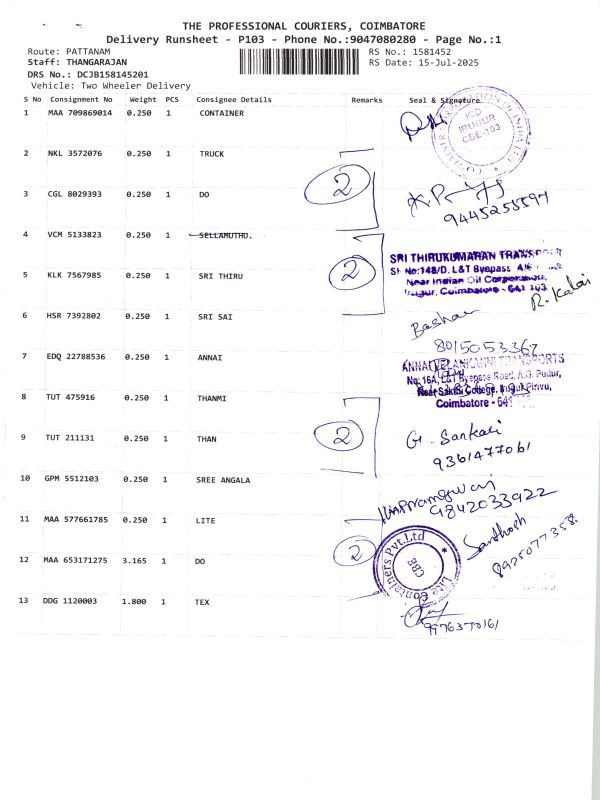 THE PROFESSIONAL COURIERS, COIMBATORE
Delivery Runsheet - P103 - Phone No.:9047080280 - Page No.:1
Route: PATTANAM
RS No.: 1581452
Staff: THANGARAJAN
RS Date: 15-Jul-2025
DRS No.: DCJB158145201
Vehicle: Two Wheeler Delivery
S No Consignment No Weight PCS Consignee Details Remarks Seal & Signature
1 MAA 709869014 0.250 1 CONTAINER
ICD
IRUGUR
CBE-103
2 NKL 3572076 0.250 1 TRUCK
2
3 CGL 8029393 0.250 1 DO
9445255597
4 VCM 5133823 0.250 1 SELLAMUTHU.
SRI THIRUKUMARAN TRANSPORT
2
5 KLK 7567985 0.250 1 SRI THIRU
Near Indian Oil Corporation,
Irugur, Coimbatore - 641 103
R. Kalai
6 HSR 7392802 0.250 1 SRI SAI
Bashar
8015053367
7 EDQ 22788536 0.250 1 ANNAI
ANNAI VELANKANNI TRANSPORTS
No: 16A, L&T Byepass Road, A.G. Pudur,
8 TUT 475916 0.250 1 THANMI
Coimbatore - 641
9 TUT 211131 0.250 1 THAN
2
G. Sankari
9361477061
10 GPM 5512103 0.250 1 SREE ANGALA
9842033922
11 MAA 577661785 0.250 1 LITE
Santhosh
8925077358
12 MAA 653171275 3.165 1 DO
2
Lite Containers Pvt.Ltd
CBE
13 DDG 1120003 1.800 1 TEX
9976370161